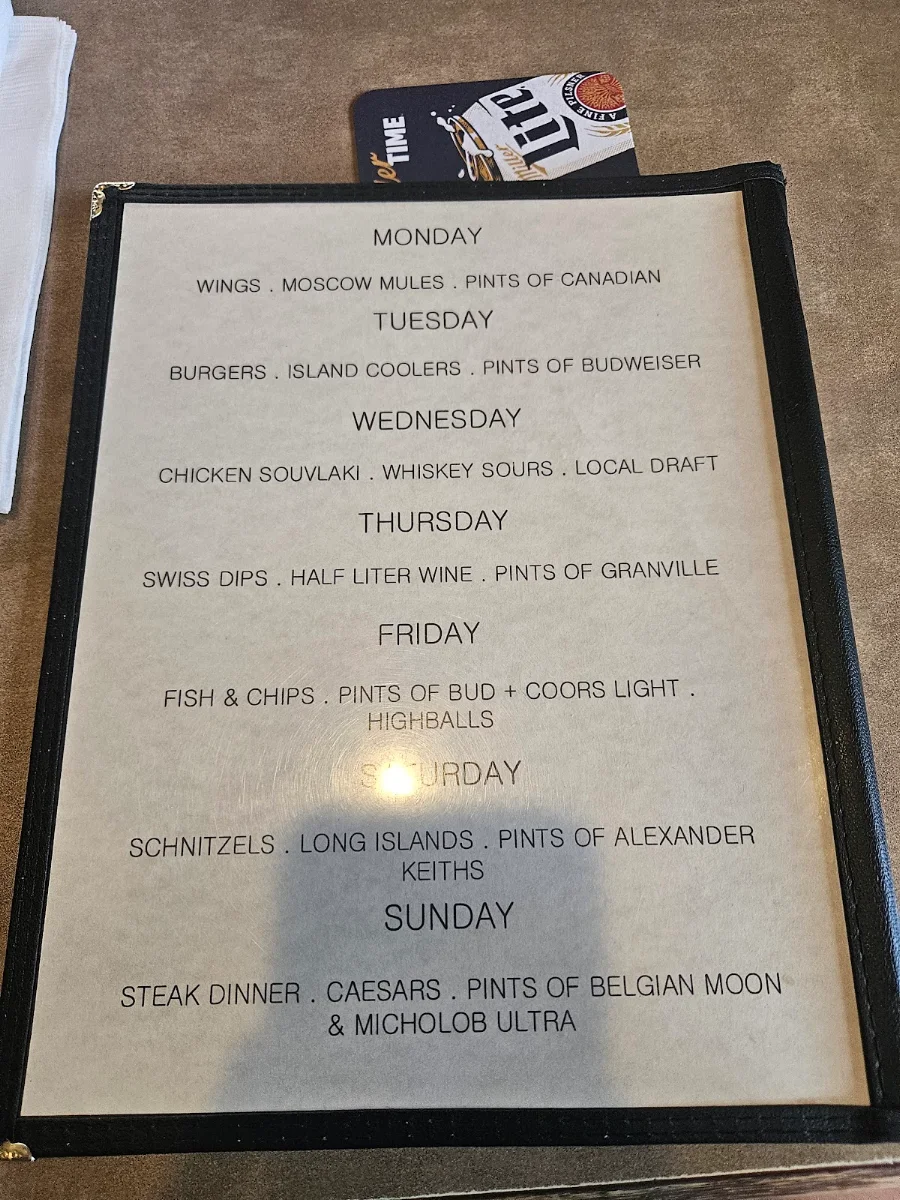 er TIME
Miller Lite
A FINE PILSNER
MONDAY
WINGS . MOSCOW MULES . PINTS OF CANADIAN
TUESDAY
BURGERS . ISLAND COOLERS . PINTS OF BUDWEISER
WEDNESDAY
CHICKEN SOUVLAKI . WHISKEY SOURS . LOCAL DRAFT
THURSDAY
SWISS DIPS . HALF LITER WINE . PINTS OF GRANVILLE
FRIDAY
FISH & CHIPS . PINTS OF BUD + COORS LIGHT .
HIGHBALLS
SATURDAY
SCHNITZELS . LONG ISLANDS . PINTS OF ALEXANDER
KEITHS
SUNDAY
STEAK DINNER . CAESARS . PINTS OF BELGIAN MOON
& MICHOLOB ULTRA